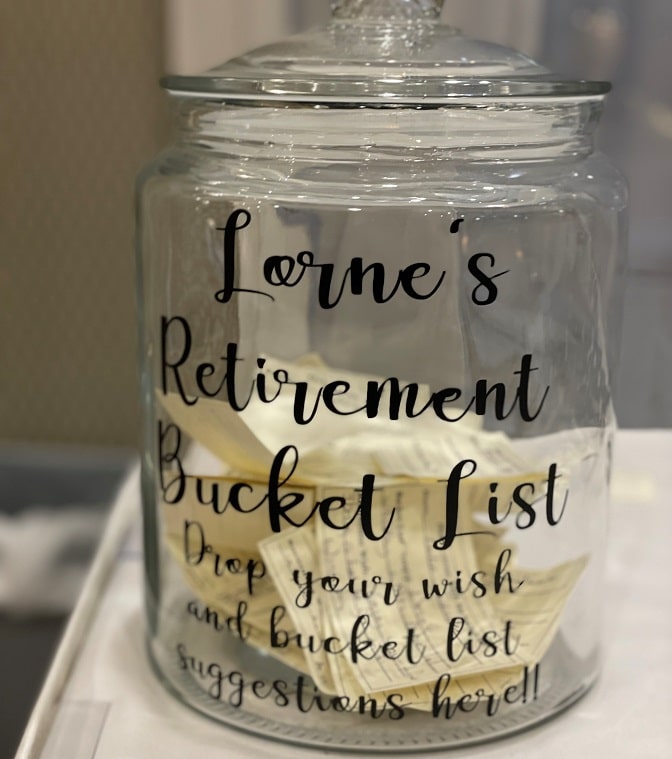 Lorne's
Retirement
Bucket List
Drop your wish
and bucket list
suggestions here!!